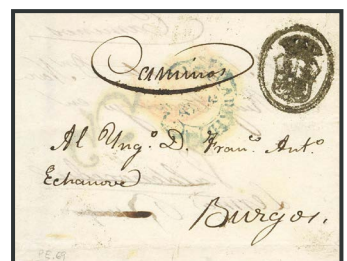 Caminos
Al Yng.º D. Fran.co Ant.º
Echanove
Burgos.
P.E. 69